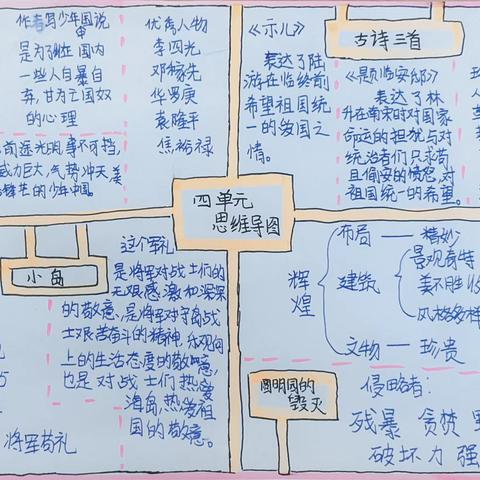 作者写少年中国说
是为了驳斥国内
一些人自暴自
弃,甘为亡国奴
的心理
前途光明,势不可挡,
威力巨大,气势冲天,美
的少年中国。
优秀人物
李四光
邓稼先
华罗庚
袁隆平
焦裕禄
《示儿》
表达了陆
游在临终前
希望祖国统
一的爱国之
情。
古诗三首
《题临安邸》
表达了林
升在南宋时对国家
命运的担忧与对
统治者们只求苟
且偷安的愤怒,对
祖国统一的希望。
四单元
思维导图
小岛
这个军礼
是将军对战士们的
无艰感激和深深
的敬意,是将军对守岛战
士艰苦奋斗的精神,乐观向
上的生活态度的敬意,
也是对战士们热爱
海岛,热爱祖
国的敬意。
将军敬礼
辉煌
布局——精妙
建筑
景观奇特
美不胜收
风格多样
文物——珍贵
圆明园的
毁灭
侵略者:
残暴 贪婪
破坏力强